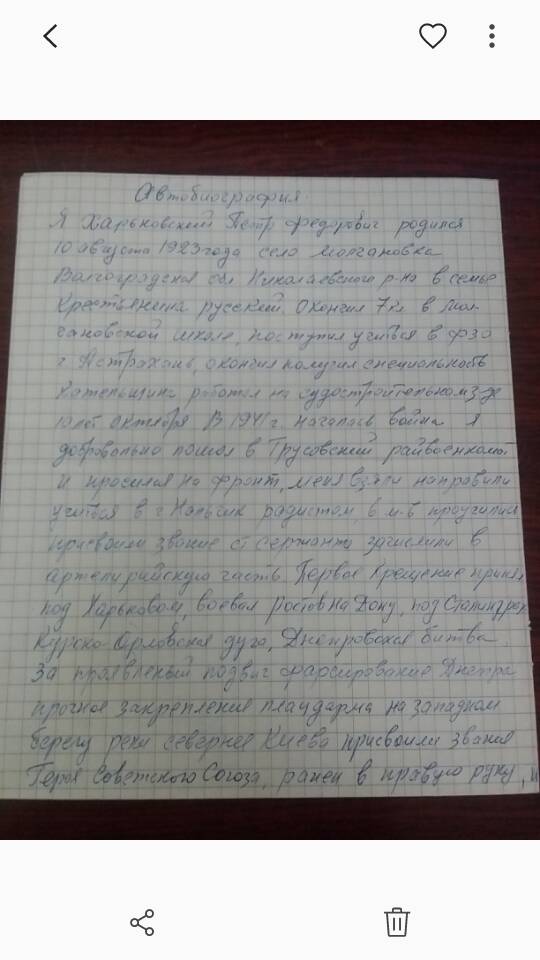 Автобиография
Я Харьковский Петр Федорович родился
10 августа 1923 года село Молчановка
Волгоградская обл Николаевского р-на в семье
Крестьянина русский. Окончил 7 кл в Мол-
чановской школе, поступил учиться в ФЗО
г Астрахань, окончил получил специальность
Котельщика работал на судостроительном з-де
10 лет октября В 1941 г. началась война я
добровольно пошел в Трусовский райвоенкомат
и просился на фронт, меня взяли направили
учиться в г Нальчик радистом, 6 м-в проучился
присвоили звание ст сержанта зачислили в
артелирийскую часть. Первое Крещение принял
под Харьковом, воевал Ростов на Дону, под Сталинград
Курско-Орловская дуга, Днепровская битва.
За проявленый подвиг фарсирование Днепра
прочное закрепление плацдарма на западном
берегу реки севернее Киева присвоили звания
Героя Советского Союза, ранен в правую руку, и